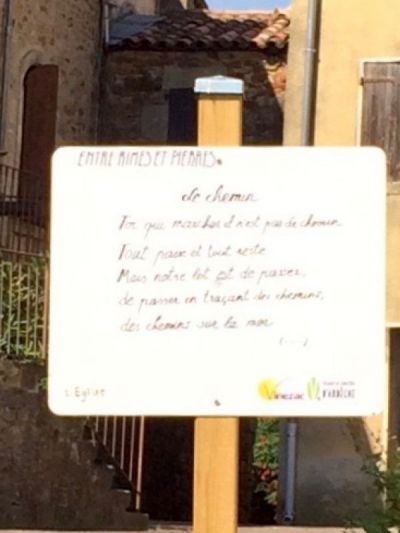 ENTRE RIMES ET PIERRES
Le chemin
Toi qui marches il n'est pas de chemin
Tout passe et tout reste
Mais notre lot est de passer,
de passer en traçant des chemins,
des chemins sur la mer
(....)
L'Eglise
D'ARDÈCHE